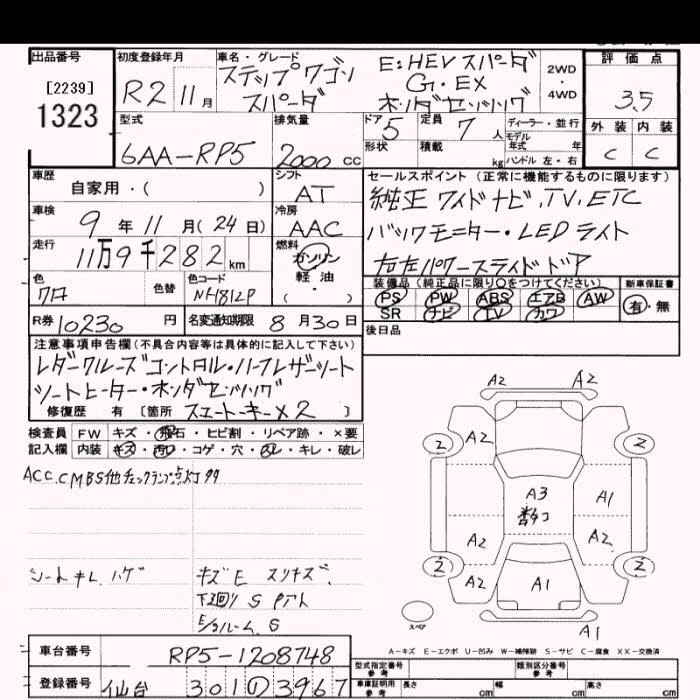 出品番号 初度登録年月 車名・グレード 評価点
[2239]
1323
R2 11月 ステップワゴン E:HEV スパーダ 2WD
スパーダ G・EX ・
ホンダセンシング 4WD
3.5
型式 排気量 ドア 5 定員 7人 ディーラー・並行 外装 内装
モデル年式 年
6AA-RP5 2000cc 形状 積載 kg ハンドル 左・右 C C
車歴 自家用・( ) シフト AT セールスポイント (正常に機能するものに限ります)
純正ワイドナビ、TV、ETC
車検 9年11月(24日) 冷房 AAC
バックモニター・LEDライト
走行 11万9千282km 燃料 ガソリン 軽油 ・( )
右左パワースライドドア
色 クロ 色替 色コード NH812P
装備品 (純正品に限り○をつけてください) 新車保証書
PS PW ABS エアB AW 有・無
SR ナビ TV カワ
R券 10230円 名変通知期限 8月30日 後日品
注意事項申告欄 (不具合内容等は具体的に記入して下さい)
レダークルーズコントロル・ハーフレザーシート
シートヒーター・ホンダセンシング
修復歴 有 [箇所 スエートーキーX2 ]
検査員 FW キズ・飛石・ヒビ割・リペア跡・×要
記入欄 内装 キズ・汚レ・コゲ・穴・スレ・キレ・破レ
ACC.CMBS他チェックランプ点灯
シートキレ、ハゲ キズE スリキズ、
下回りS
E/gルーム、S
A2 A2
2 A2 2
A3 A1
A2 A2
2 A2 A1 A2 2
スペア
A1
A-キズ E-エクボ U-凹み W-補修跡 S-サビ C-腐食 XX-交換済
車台番号 RP5-1208748
型式指定番号 参考 類別区分番号 参考
登録番号 仙台 301 の 3967
車庫証明用 参考 長さ cm 幅 cm 高さ cm